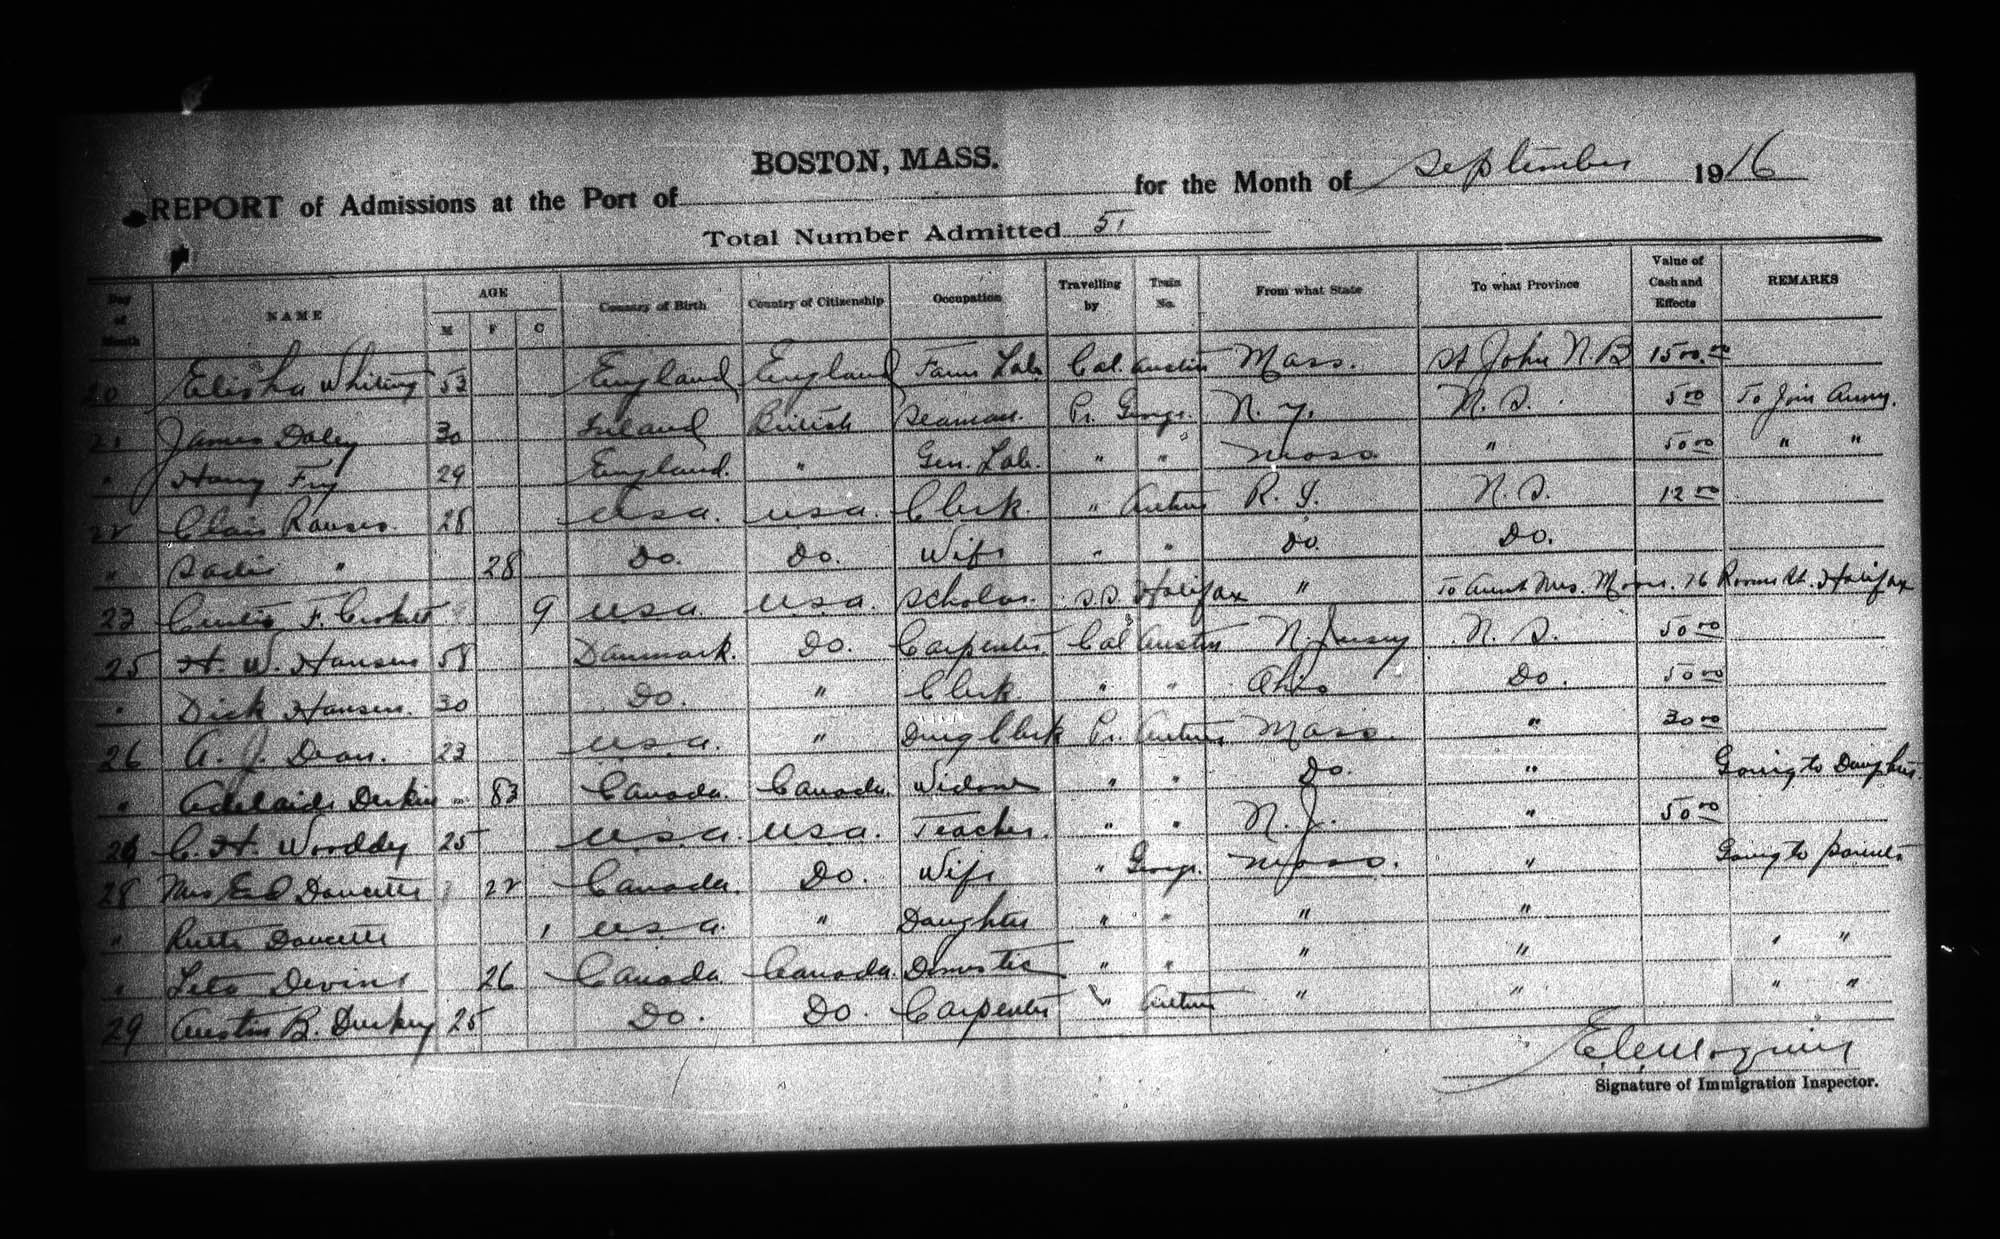 BOSTON, MASS.
REPORT of Admissions at the Port of for the Month of September 1916
Total Number Admitted 51
Day of Month NAME AGE M F C Country of Birth Country of Citizenship Occupation Travelling by Train No. From what State To what Province Value of Cash and Effects REMARKS
20 Elisha Whiting 53 England England Farm Lab. Cal. Austin Mass. St John N.B 1500.00
21 James Daley 30 Ireland British Seaman. Pr. George N.Y. N.S. 5 00 To Join Army.
" Harry Fry 29 England. " Gen. Lab. " " Mass " 50 00 " "
22 Clair 28 U.S.A. U.S.A. Clerk. " Arthur R.I. N.S. 12 00
" Sadie " 28 Do. Do. Wife " " Do. Do.
23 Curtis F. 9 U.S.A. U.S.A. Scholar. S.S. Halifax " To Aunt Mrs. 76 Halifax
25 H. W. Hansen 58 Danmark. Do. Carpenter. Cal Austin N. Jersey N.S. 50 00
" Dick Hansen. 30 Do. " Clerk. " " Ohio Do. 50 00
26 A. J. Dean. 23 U.S.A. " Drug Clerk Pr. Arthur Mass. " 30 00
" Adelaide 83 Canada. Canada. Widow " " Do. " Going to Daughter.
26 C. H. Worddy 25 U.S.A. U.S.A. Teacher. " " N.J. " 50 00
28 Mrs Ed Doucette 22 Canada. Do. Wife " George. Mass. " Going to parents
" Ruth Doucette 1 U.S.A. " Daughter " " " "
" Devine 26 Canada Canada. Domestic " " " " " "
29 Austin B. Durkey 25 Do. Do. Carpenter " Arthur " " " "
Signature of Immigration Inspector.